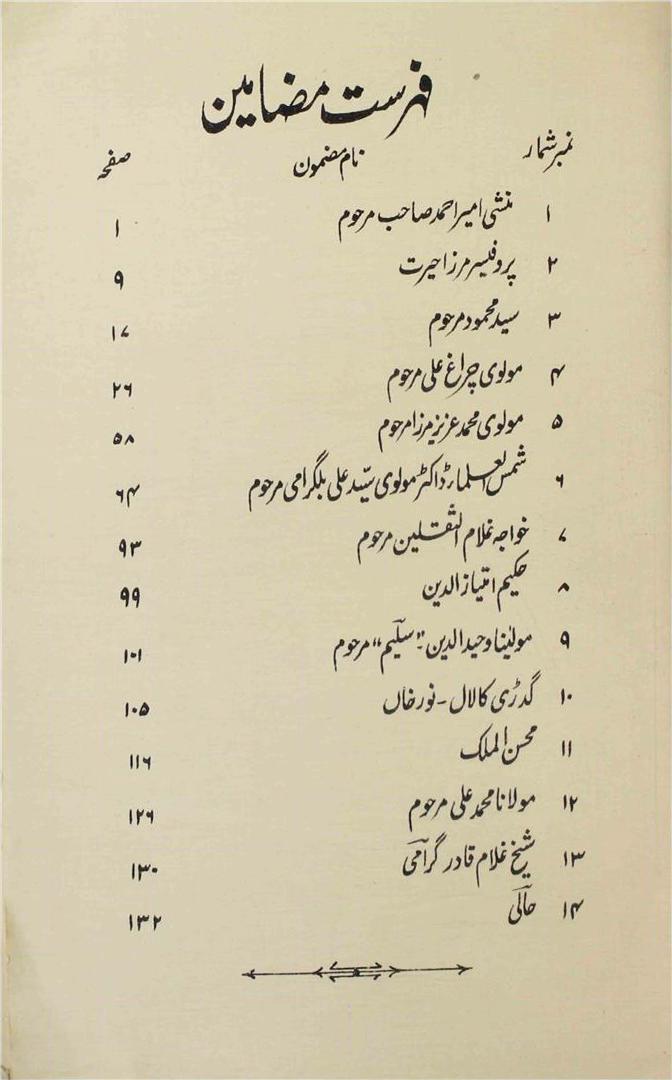 فہرست مضامین
نمبر شمار نام مضمون صفحہ
۱ منشی امیر احمد صاحب مرحوم ۱
۲ پروفیسر مرزا حیرت ۹
۳ سید محمود مرحوم ۱۷
۴ مولوی چراغ علی مرحوم ۲۶
۵ مولوی محمد عزیز مرزا مرحوم ۵۸
۶ شمس العلماء ڈاکٹر مولوی سیّد علی بلگرامی مرحوم ۶۴
۷ خواجہ غلام الثقلین مرحوم ۹۳
۸ حکیم امتیاز الدین ۹۹
۹ مولینا وحید الدین۔ "سلیم" مرحوم ۱۰۱
۱۰ گدڑی کا لال - نور خاں ۱۰۵
۱۱ محسن الملک ۱۱۶
۱۲ مولانا محمد علی مرحوم ۱۲۶
۱۳ شیخ غلام قادر گرامی ۱۳۰
۱۴ حالی ۱۳۲